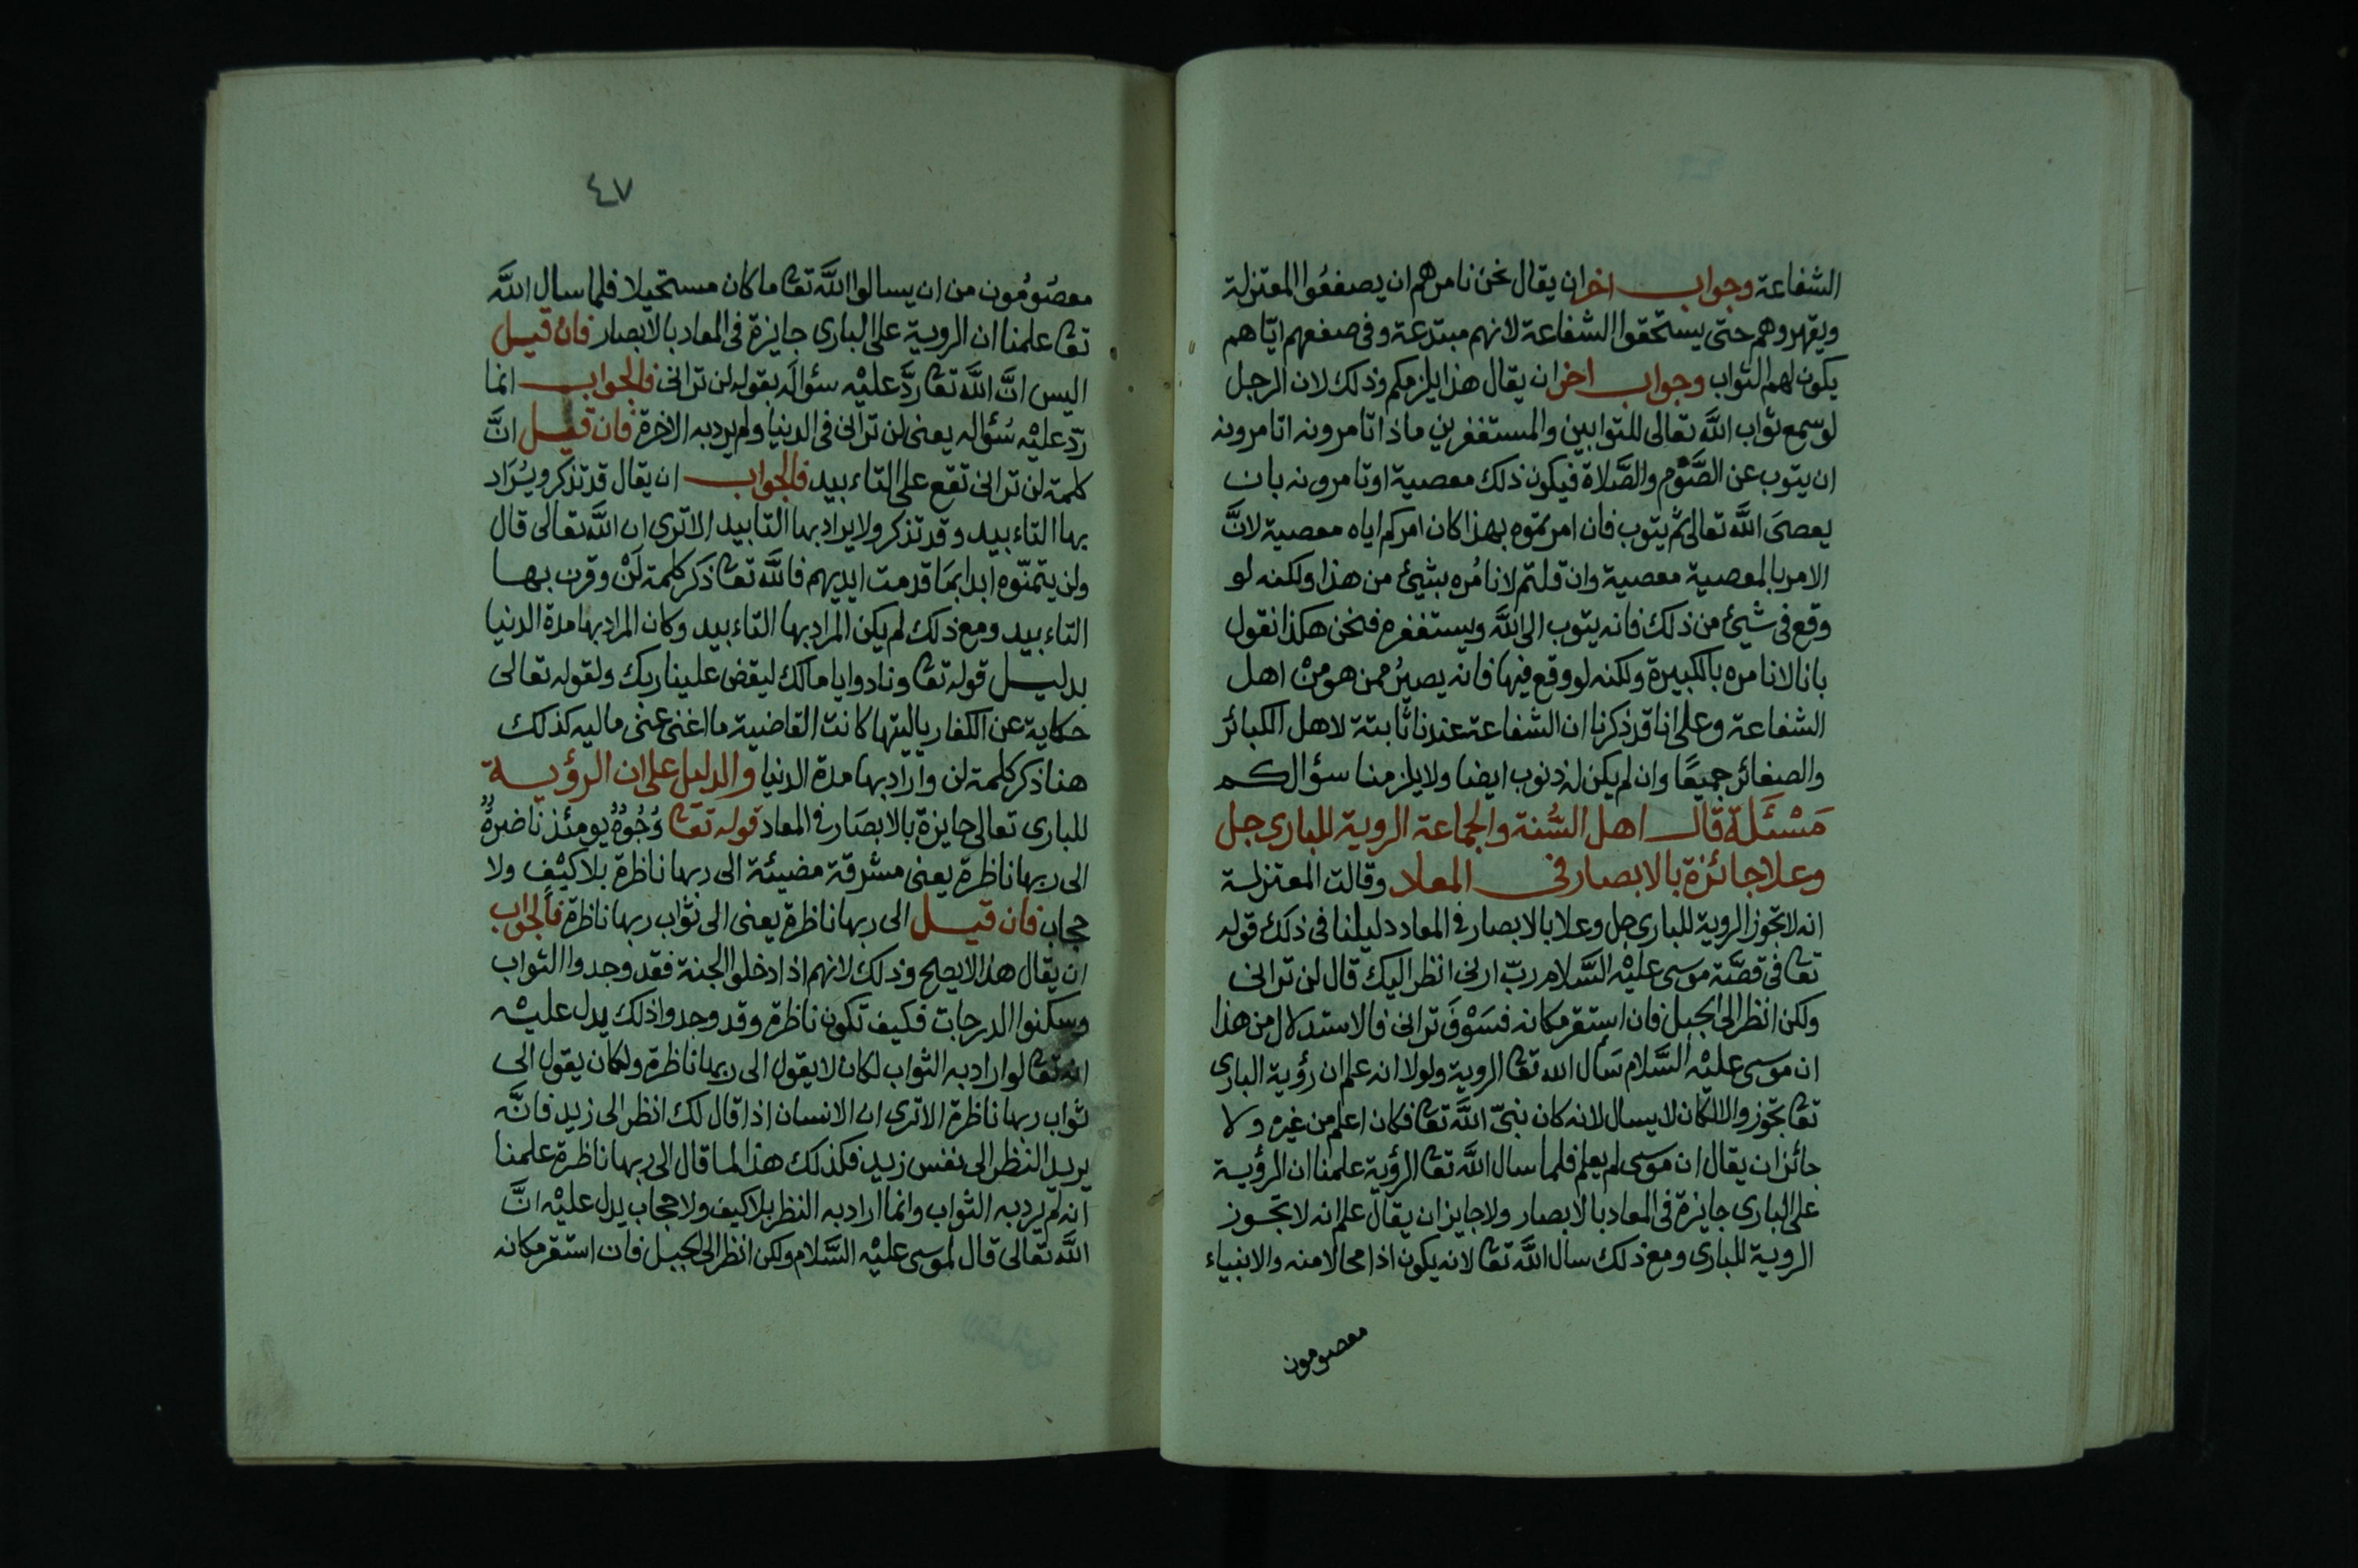 الشفاعة وجواب اخر ان يقال نحن نامرهم ان يصفعُوا المعتزلة
ويقهروهم حتى يستحقوا الشفاعة لانهم مبتدعة وفى صفعهم ايّاهم
يكون لهم الثواب وجواب اخر ان يقال هذا يلزمكم وذلك لان الرجل
لو سمع ثواب اللَّه تعالى للتوابين والمستغفرين ماذا تامرونه اتامرونه
ان يتوب عن الصَّوْم والصَّلاة فيكون ذلك معصية او تامرونه بان
يعصىَ اللَّه تعالى ثم يتوب فان امرتموه بهذا كان امركم اياه معصية لانَّ
الامر بالمعصية معصية وان قلتم لا نامُره بشيئ من هذا ولكنه لو
وقع فى شيئ من ذلك فانه يتوب الى اللَّه ويستغفره فنحن هكذا نقول
بانا لا نامره بالكبيرة ولكنه لو وقع فيها فانه يصيرُ ممن هو مِنْ اهل
الشفاعة وعلى انا قد ذكرنا ان الشفاعة عندنا ثابتة لاهل الكبائر
والصغائر جميعًا وان لم يكن له ذنوب ايضا ولا يلزمنا سؤالكم
مَسْئَلَة قال اهل السُّنة والجماعة الروية للبارى جل
وعلا جائزة بالابصار فى المعاد وقالت المعتزلة
انه لا تجوز الروية للبارى جل وعلا بالابصار فى المعاد دليلنا فى ذلك قوله
تعا فى قصَّة موسى عليْه السَّلام ربّ ارنى انظر اليك قال لن ترانى
ولكن انظر الى الجبل فان استقر مكانه فسَوْفَ ترانى فالاستدلال من هذا
ان موسى عليْه السَّلام سَأل الله تعا الروية ولولا انه علم ان رؤية البارى
تعا تجوز والا لكان لا يسال لانه كان نبىّ اللَّه تعا فكان اعلم من غيره ولا
جائز ان يقال ان موسى لم يعلم فلما سال اللَّه تعا الرؤية علمنا ان الرؤية
على البارى جايزة فى المعاد بالابصار ولا جايز ان يقال علم انه لا تجوز
الروية للبارى ومع ذلك سال اللَّه تعا لانه يكون اذا محالا منه والانبياء
معصومون
٤٧
معصُومُون من ان يسالوا اللَّه تعا ما كان مستحيلا فلما سال اللَّه
تعا علمنا ان الروية على البارى جايزة فى المعاد بالابصار فان قيل
اليس انَّ اللَّه تعا ردَّ عليْه سؤالَه بقوله لن ترانى فالجواب انما
ردّ عليْه سُؤاله يعنى لن ترانى فى الدنيا ولم يرد به الاخرة فان قيل انَّ
كلمة لن ترانى تقع على التاءبيد فالجواب ان يقال قد تذكر ويُرَاد
بها التاءبيد وقد تذكر ولا يراد بها التابيد الا ترى ان اللَّه تعالى قال
ولن يتمنّوه ابدا بمَا قدمت ايديهم فاللَّه تعا ذكر كلمة لَنْ وقرن بها
التاءبيد ومع ذلك لم يكن المراد بها التاءبيد وكان المراد بها مدة الدنيا
بدليل قوله تعا ونادوا يا مالك ليقض علينا ربك ولقوله تعالى
حكاية عن الكفار ياليتها كانت القاضية ما اغنى عنى ماليه كذلك
هنا ذكر كلمة لن واراد بها مدة الدنيا والدليل على ان الرؤية
للبارى تعالى جايزة بالابصَار فى المعاد قوله تعا وُجُوهٌ يومئذ ناضرةٌ
الى ربها ناظرة يعنى مشرقة مضيئة الى ربها ناظرة بلا كيْف ولا
حجاب فان قيل الى ربها ناظرة يعنى الى ثواب ربها ناظرة فالجواب
ان يقال هذا لا يصلح وذلك لانهم اذا دخلوا الجنة فقد وجدوا الثواب
وسكنوا الدرجات فكيف تكون ناظرة وقد وجدوا ذلك يدل عليْه
انه تعا لو اراد به الثواب لكان لا يقول الى ربها ناظرة ولكان يقول الى
ثواب ربها ناظرة الا ترى ان الانسان اذا قال لك انظر الى زيد فانَّه
يريد النظر الى نفس زيد فكذلك هذا لما قال الى ربها ناظرة علمنا
انه لم يرد به الثواب وانما اراد به النظر بلا كيف ولا حجاب يدل عليْه انَّ
اللَّه تعالى قال لموسى عليْه السَّلام ولكن انظر الى الجبل فان استقر مكانه